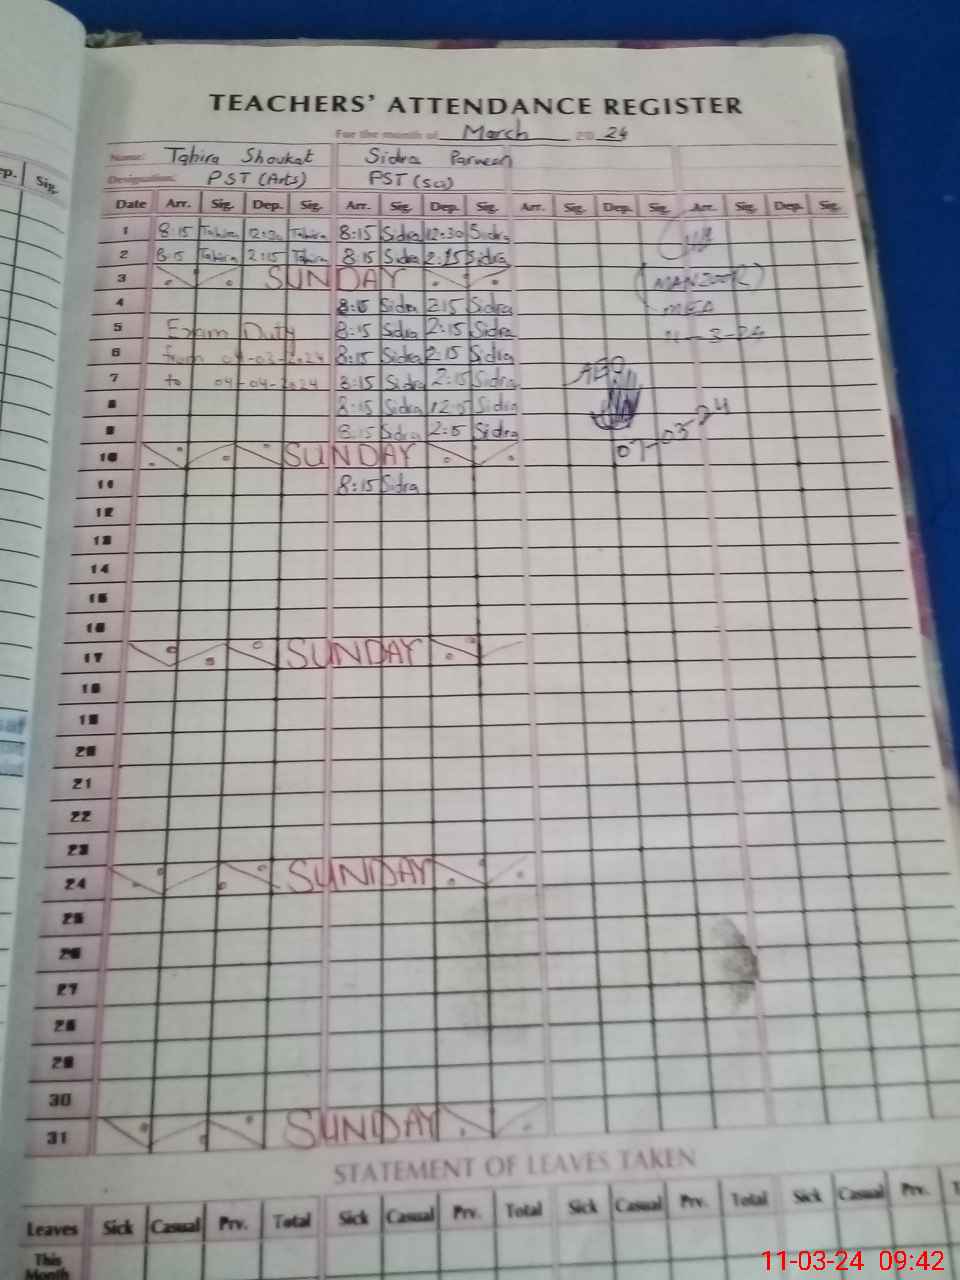 TEACHERS' ATTENDANCE REGISTER
For the month of March 20 24
Name: Tahira Shoukat Sidra Parveen
Designation: PST (Arts) PST (Sci)
Date Arr. Sig. Dep. Sig. Arr. Sig. Dep. Sig. Arr. Sig. Dep. Sig. Arr. Sig. Dep. Sig.
1 8:15 Tahira 12:30 Tahira 8:15 Sidra 12:30 Sidra
2 8:15 Tahira 2:15 Tahira 8:15 Sidra 2:15 Sidra
3 SUNDAY (MANZOOR)
4 8:15 Sidra 2:15 Sidra MEA
5 Exam Duty 8:15 Sidra 2:15 Sidra 11-3-24
6 from 04-03-2024 8:15 Sidra 2:15 Sidra
7 to 04-04-2024 8:15 Sidra 2:15 Sidra AEO
8 8:15 Sidra Sidra
9 8:15 Sidra 2:15 Sidra 07-03-24
10 SUNDAY
11 8:15 Sidra
12
13
14
15
16
17 SUNDAY
18
19
20
21
22
23
24 SUNDAY
25
26
27
28
29
30
31 SUNDAY
STATEMENT OF LEAVES TAKEN
Leaves Sick Casual Prv. Total Sick Casual Prv. Total Sick Casual Prv. Total Sick Casual Prv.
This
Month
11-03-24 09:42
ep. Sig.